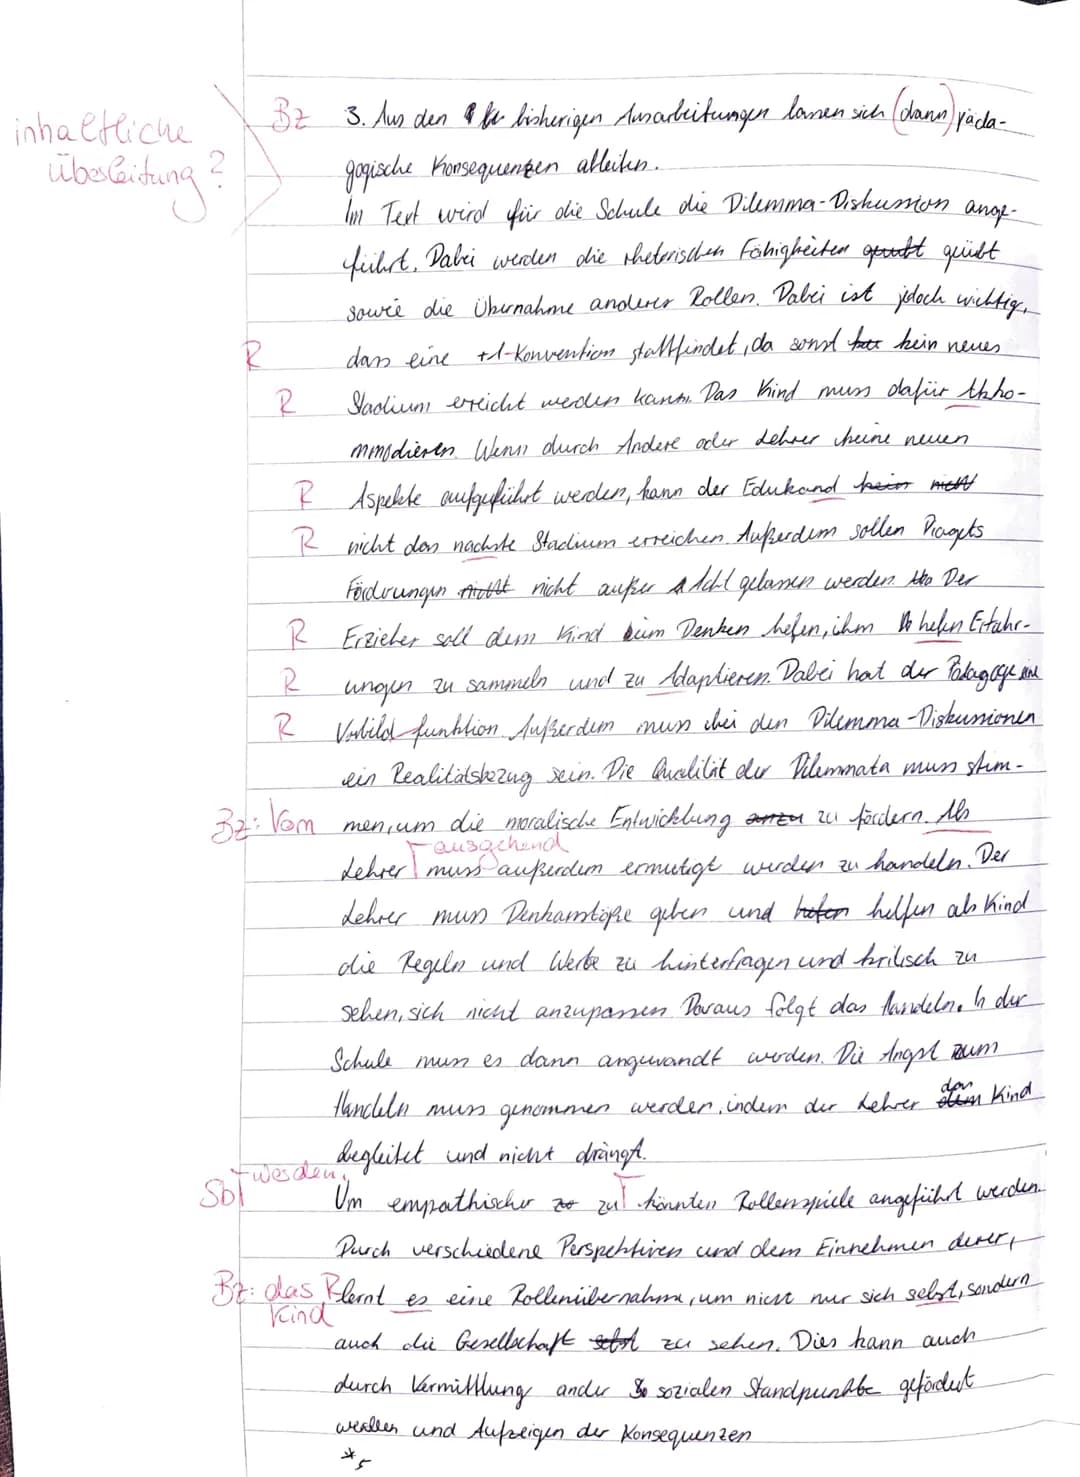 inhaltliche
Überleitung?
Bz 3. Aus den bisherigen Ausarbeitungen lassen sich (dann) päda-
gogische Konsequenzen ableiten.
Im Text wird für die Schule die Dilemma-Diskussion ange-
führt. Dabei werden die rhetorischen Fähigkeiten geübt
sowie die Übernahme anderer Rollen. Dabei ist jedoch wichtig,
R dass eine +1-Konvention stattfindet, da sonst kein neues
R Stadium erreicht werden kann. Das Kind muss dafür Akko-
mmodieren. Wenn durch Andere oder Lehrer keine neuen
R Aspekte aufgeführt werden, kann der Edukand
R nicht das nachste Stadium erreichen. Außerdem sollen Piagets
Förderungen nicht außer Acht gelassen werden. Der
R Erzieher soll dem Kind beim Denken helfen, ihm helfen Erfahr-
R ungen zu sammeln und zu Adaptieren. Dabei hat der Pädagoge eine
R Vorbild funktion. Außerdem muss bei den Dilemma-Diskussionen
ein Realitätsbezug sein. Die Qualität der Dilemmata muss stim-
Bz: Vom men, um die moralische Entwicklung zu fördern. Als
ausgehend
Lehrer muss außerdem ermutigt werden zu handeln. Der
Lehrer muss Denkanstöße geben und helfen als Kind
die Regeln und Werte zu hinterfragen und kritisch zu
sehen, sich nicht anzupassen. Daraus folgt das Handeln. In der
Schule muss es dann angewandt werden. Die Angst zum
Handeln muss genommen werden, indem der Lehrer das Kind
begleitet und nicht drängt.
Sb werden,
Um empathischer zu könnten Rollenspiele angeführt werden.
Durch verschiedene Perspektiven und dem Einnehmen derer,
Bz: das Kind lernt es eine Rollenübernahme, um nicht nur sich selbst, sondern
auch die Gesellschaft zu sehen. Dies kann auch
durch Vermittlung ander sozialen Standpunkte gefördert
werden und Aufzeigen der Konsequenzen
*5